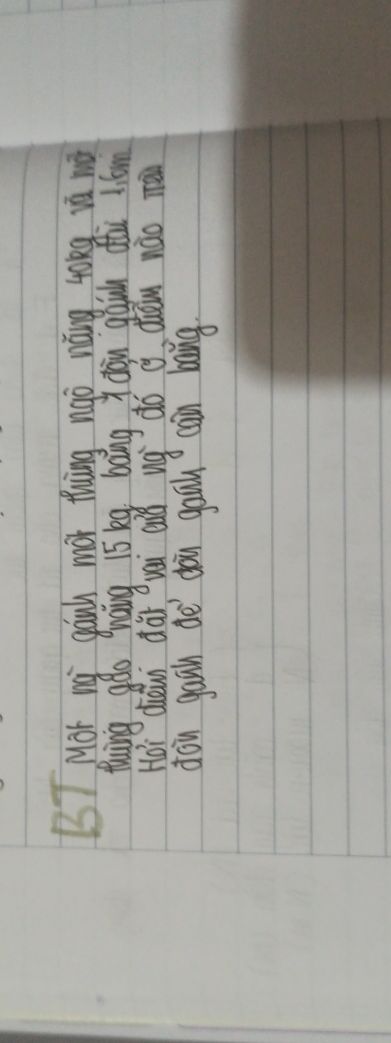 BT Một ng gánh một thùng ngô nặng 40kg và một
thùng gạo nặng 15 kg. bằng 1 đòn gánh dài 1,6m.
Hỏi điểm đặt vai của ng đó ở điểm nào trên
đòn gánh để đòn gánh cân bằng.